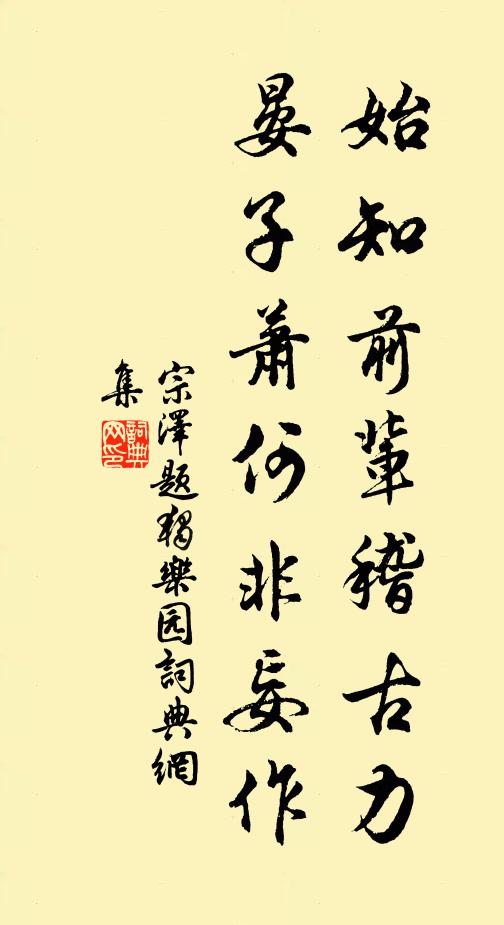 始知前輩稽古力
晏子蕭何非妄作
宗澤題獨樂园詞典網
集
詞典
网印